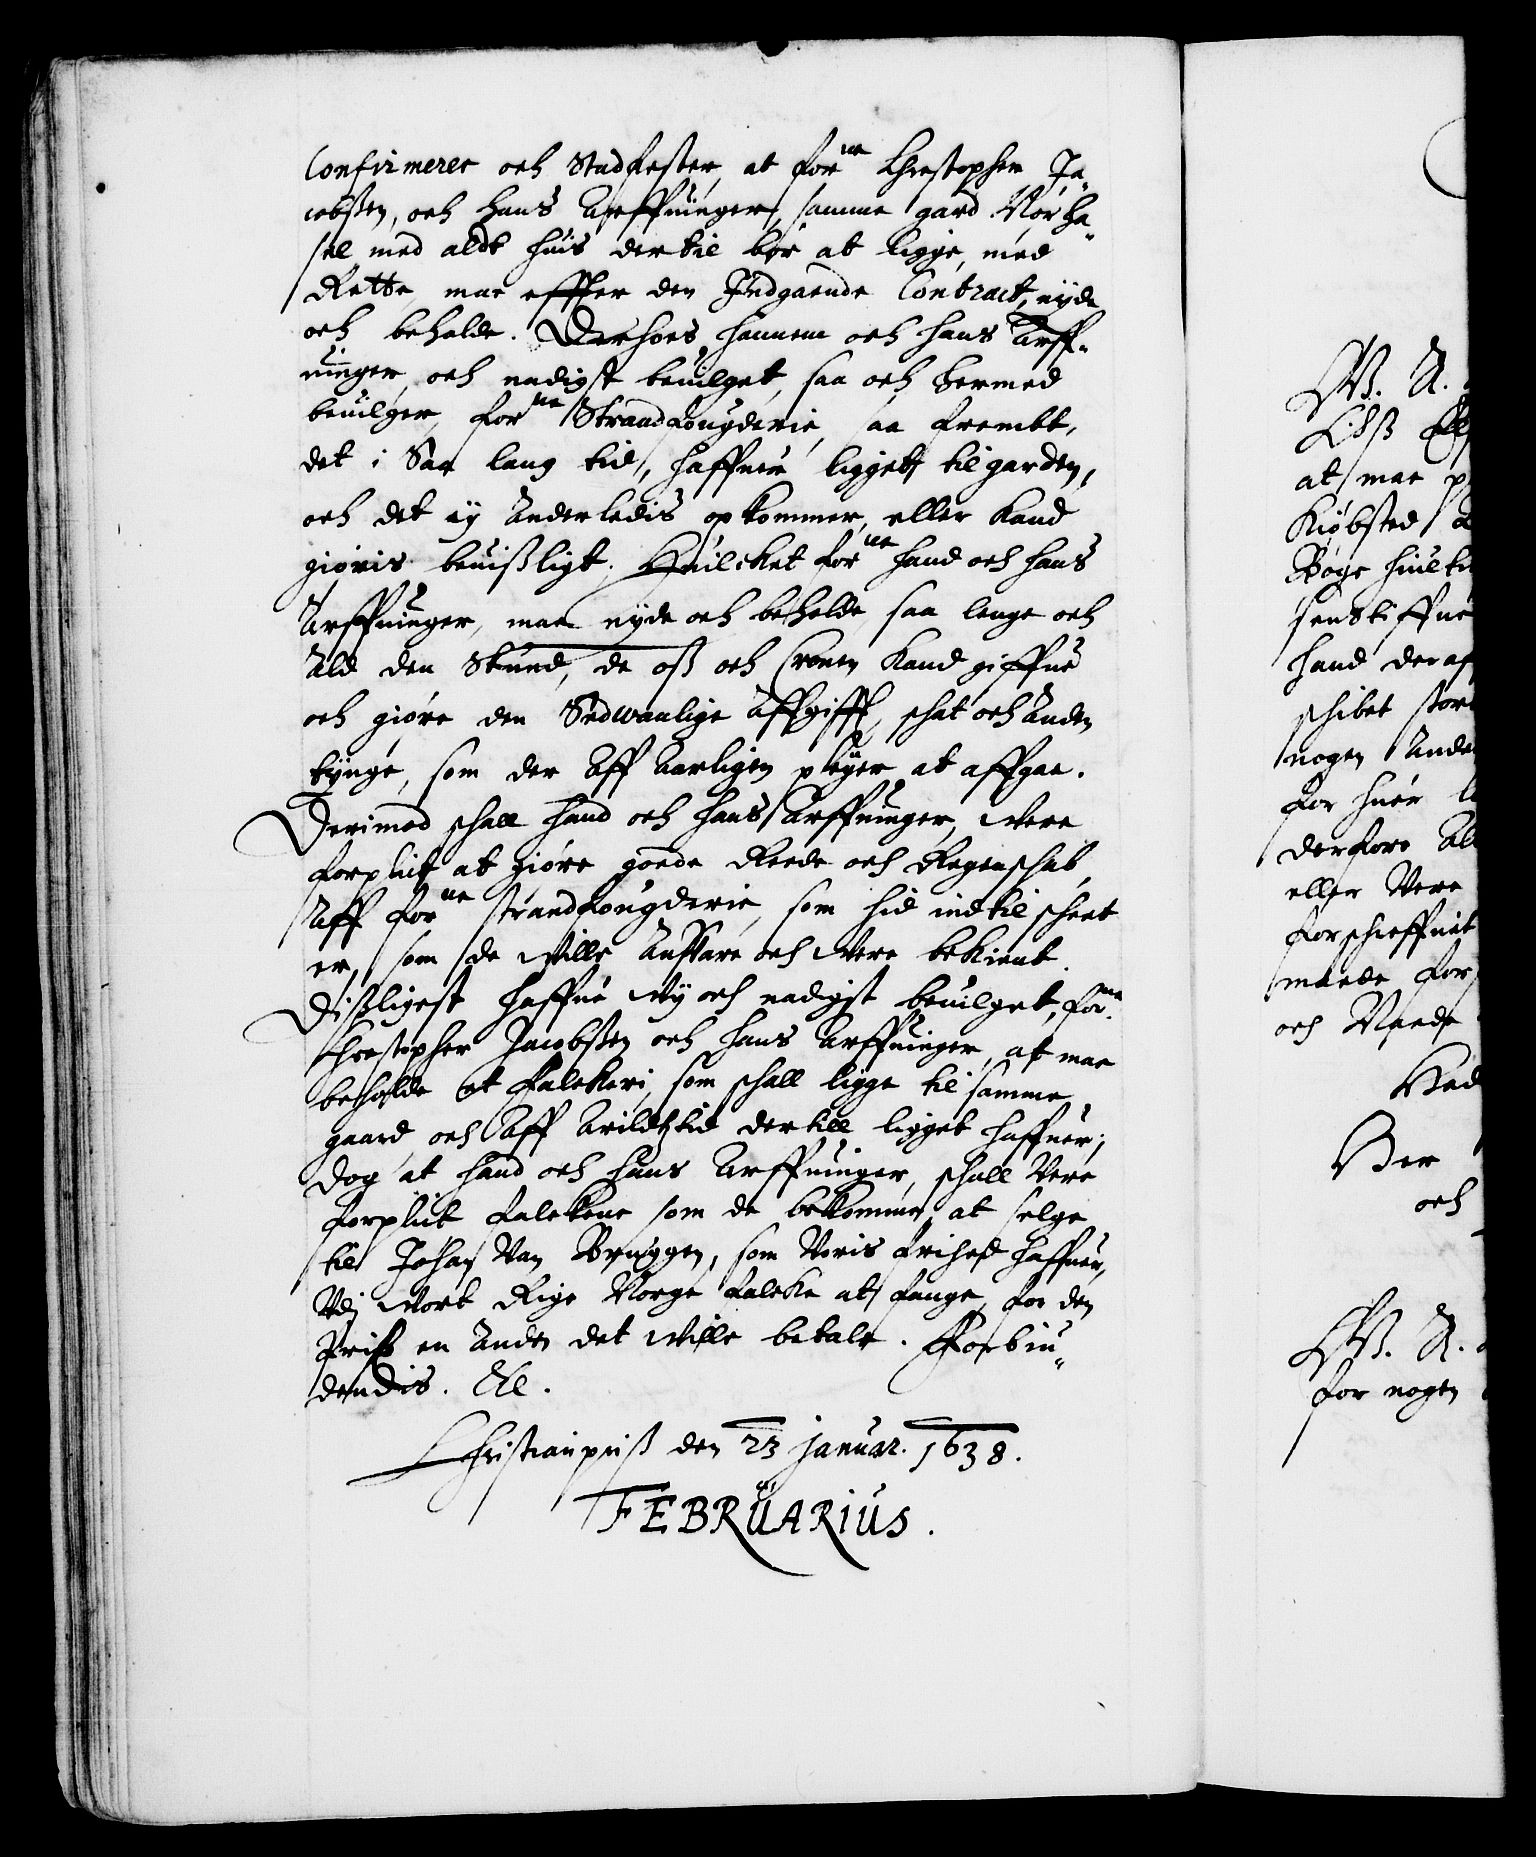 Confirmerer och Stadfester, at for^ne Christopher Ja-
cobßen, och hans Arffuinger, samme gard Nørha-
sel med aldt huis dertil bør at ligge, med
Rette, maa effter den Indgaaende Contract, nyde
och beholde. Derhoes hannem och hans Arff-
uinger, och nadigst beuilget, saa och hermed
beuilger, for^ne Strandfougderie, saa frembt,
det i Saa lang tid, haffuer ligget til garden,
och det ey Anderledis opkommer, eller kand
giøris beuißligt. Huilcket for^ne hand och hans
Arffuinger, maa nyde och beholde saa lenge och
Ald den Stund, de oß och Cronen kand giffue
och giøre den Sedwaanlige Affgifft, schat och Anden
tynge, som der Aff Aarligen pleyer at affgaa.
Derimod schall hand och hans Arffuinger, were
forplict at giøre goede Reede och Regenschab,
Aff for^ne strandfougderie, som hid indtil scheet
er, som de wille Ansuare och were bekient.
Dißligest haffue Wy och nadigst beuilget, for^ne
Christopher Jacobßen och hans Arffuinger, at maa
beholde et Falckeri, som schall ligge til samme
gaard, och Aff Arildtztid dertill ligget haffuer;
dog at hand och hans Arffuinger, schall Vere
forplict Falckene som de bekommer, at selge
til Johan Van Bruggen, som Voris frihed haffuer,
Vdj Wort Rige Norge falcke at fange, for den
Priß en Anden det wille betale. Forbiu-
dendis. Etc.
Christianpriß den 23 Januar. 1638.
FEBRUARIUS.
W. A.
at maa
Kiøbsted
Bøge huilck
senstiffue
hand deraf
schibet stor
nogen Ande
for huer
derfore Al
eller Vere
forschieffuit
maade for
och Naade
Her
och
W. A.
for nogen